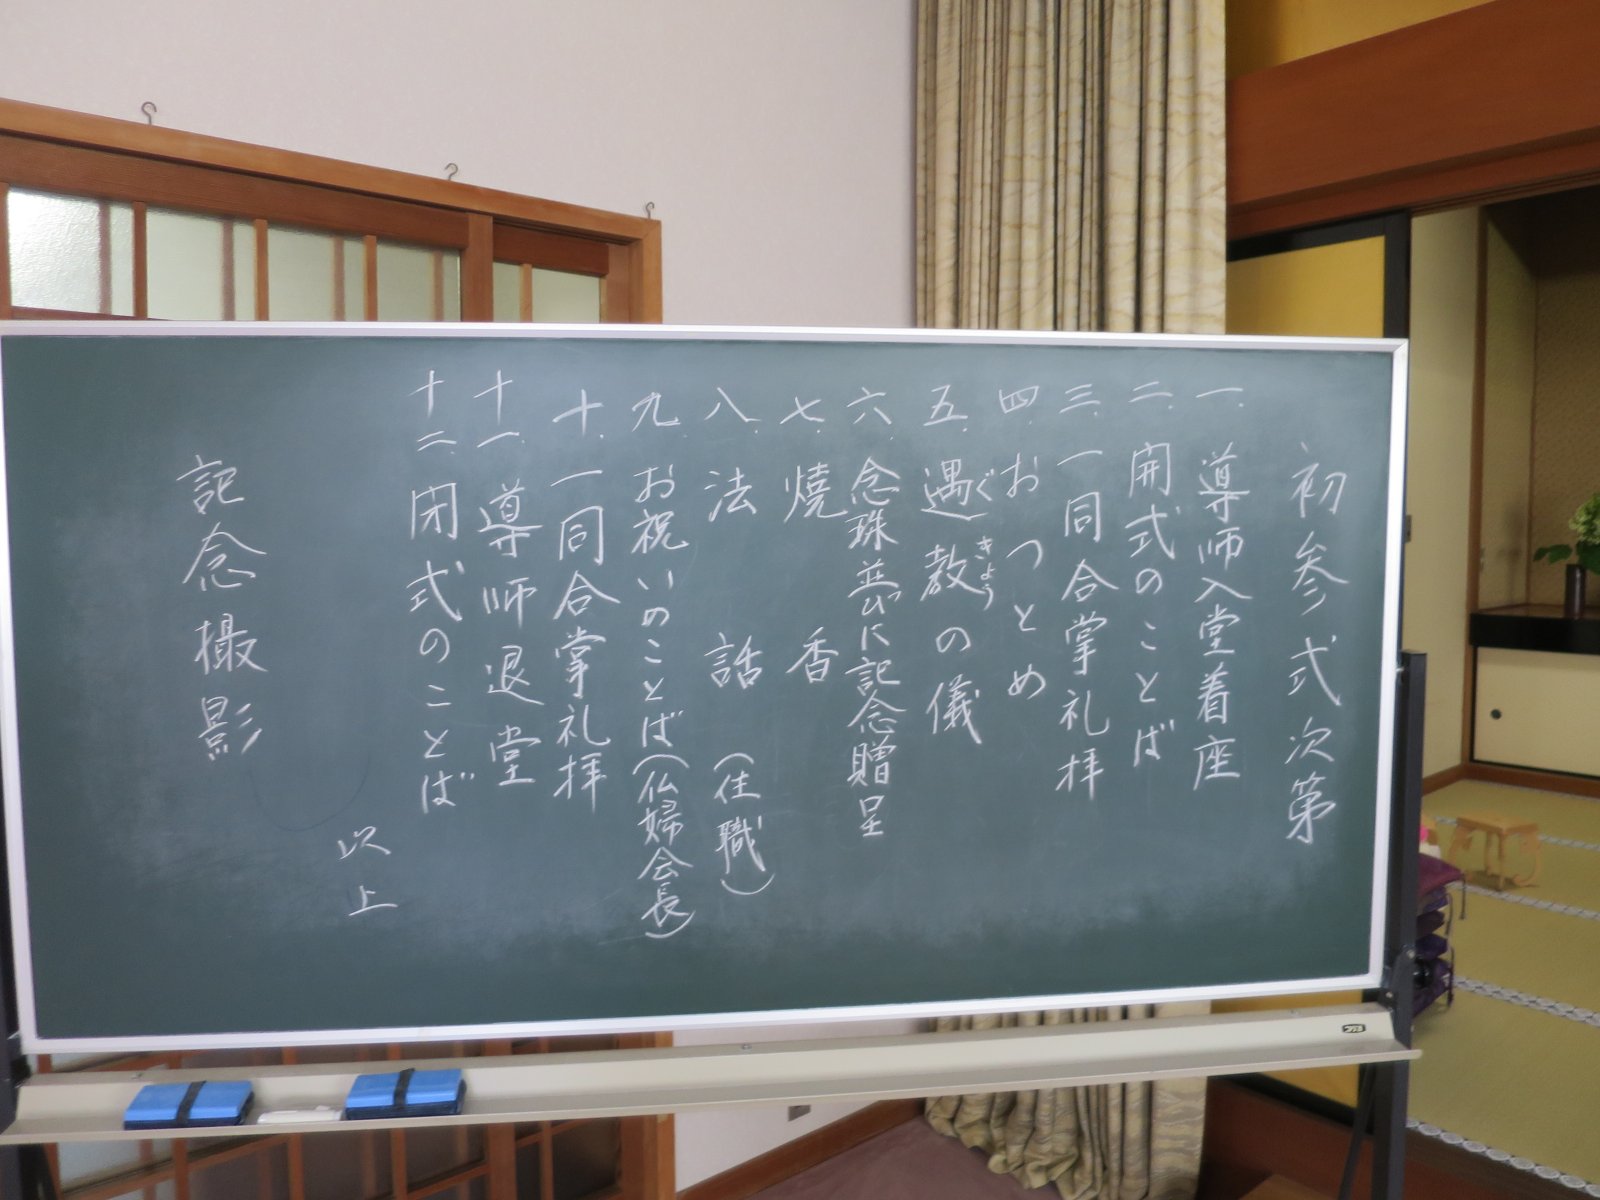 初参式次第
一. 導師入堂着座
二. 開式のことば
三. 一同合掌礼拝
四. おつとめ
五. 遇教の儀
ぐ きょう
六. 念珠並びに記念贈呈
七. 焼香
八. 法話(住職)
九. お祝いのことば(仏婦会長)
十. 一同合掌礼拝
十一. 導師退堂
十二. 閉式のことば
以上
記念撮影